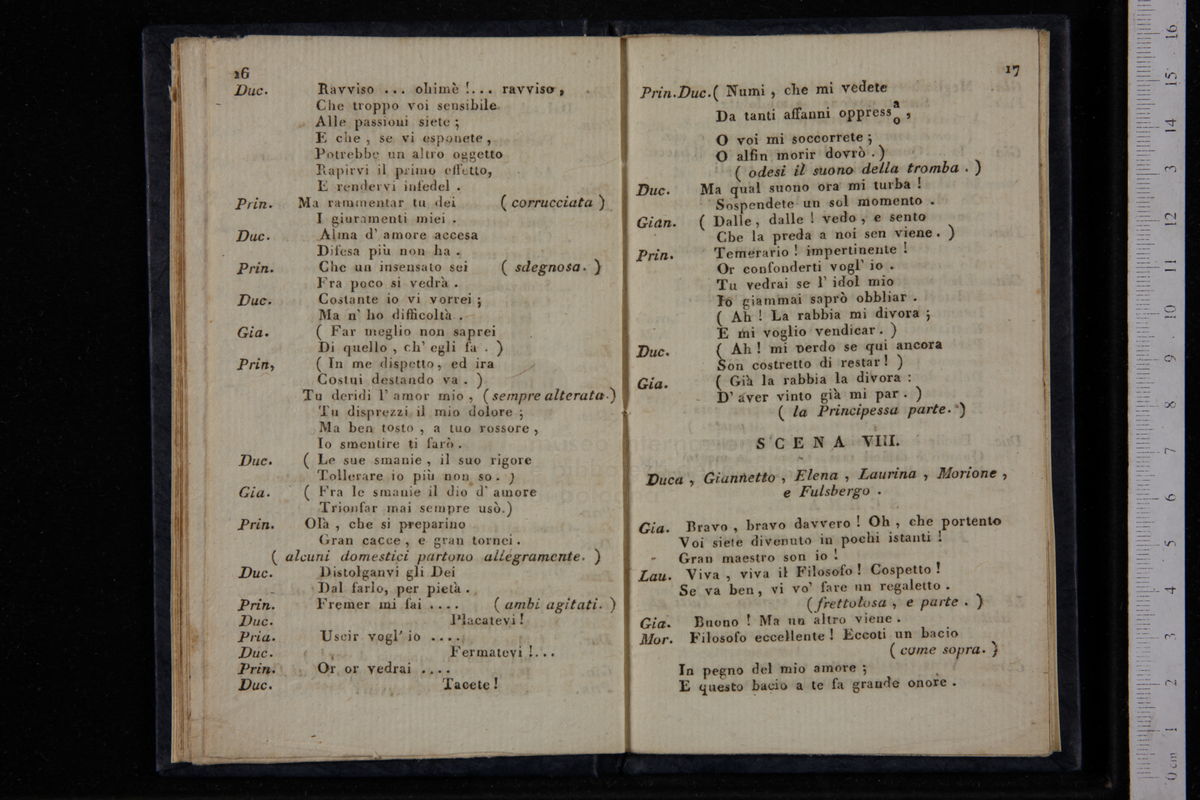 16
Duc. Ravviso ... ohimè !... ravviso,
Che troppo voi sensibile
Alle passioni siete ;
E che , se vi esponete ,
Potrebbe un altro oggetto
Rapirvi il primo effetto,
E rendervi infedel .
Prin. Ma rammentar tu dei ( corrucciata )
I giuramenti miei .
Duc. Alma d' amore accesa
Difesa più non ha .
Prin. Che un insensato sei ( sdegnosa. )
Fra poco si vedrà .
Duc. Costante io vi vorrei ;
Ma n' ho difficoltà .
Gia. ( Far meglio non saprei
Di quello , ch' egli fa . )
Prin, ( In me dispetto, ed ira
Costui destando va . )
Tu deridi l' amor mio , (sempre alterata.)
Tu disprezzi il mio dolore ;
Ma ben tosto , a tuo rossore ,
Io smentire ti farò .
Duc. ( Le sue smanie , il suo rigore
Tollerare io più non so . )
Gia. ( Fra le smanie il dio d' amore
Trionfar mai sempre usò.)
Prin. Olà , che si preparino
Gran cacce , e gran tornei .
( alcuni domestici partono allegramente. )
Duc. Distolganvi gli Dei
Dal farlo, per pietà .
Prin. Fremer mi fai .... ( ambi agitati. )
Duc. Placatevi !
Pria. Uscir vogl' io ....
Duc. Fermatevi !...
Prin. Or or vedrai ....
Duc. Tacete !
17
Prin.Duc.( Numi , che mi vedete
Da tanti affanni oppress a o ,
O voi mi soccorrete ;
O alfin morir dovrò . )
( odesi il suono della tromba . )
Duc. Ma qual suono ora mi turba !
Sospendete un sol momento .
Gian. ( Dalle , dalle ! vedo , e sento
Che la preda a noi sen viene . )
Prin. Temerario ! impertinente !
Or confonderti vogl' io .
Tu vedrai se l' idol mio
Io giammai saprò obbliar .
( Ah ! La rabbia mi divora ;
E mi voglio vendicar . )
Duc. ( Ah ! mi perdo se qui ancora
Son costretto di restar ! )
Gia. ( Già la rabbia la divora :
D' aver vinto già mi par . )
( la Principessa parte. )
SCENA VIII.
Duca , Giannetto , Elena , Laurina , Morione ,
e Fulsbergo .
Gia. Bravo , bravo davvero ! Oh , che portento
Voi siete divenuto in pochi istanti !
Gran maestro son io !
Lau. Viva , viva il Filosofo ! Cospetto !
Se va ben , vi vo' fare un regaletto .
(frettolosa , e parte . )
Gia. Buono ! Ma un altro viene .
Mor. Filosofo eccellente ! Eccoti un bacio
( come sopra. )
In pegno del mio amore ;
E questo bacio a te fa grande onore .
0 cm 1 2 3 4 5 6 7 8 9 10 11 12 13 14 15 16